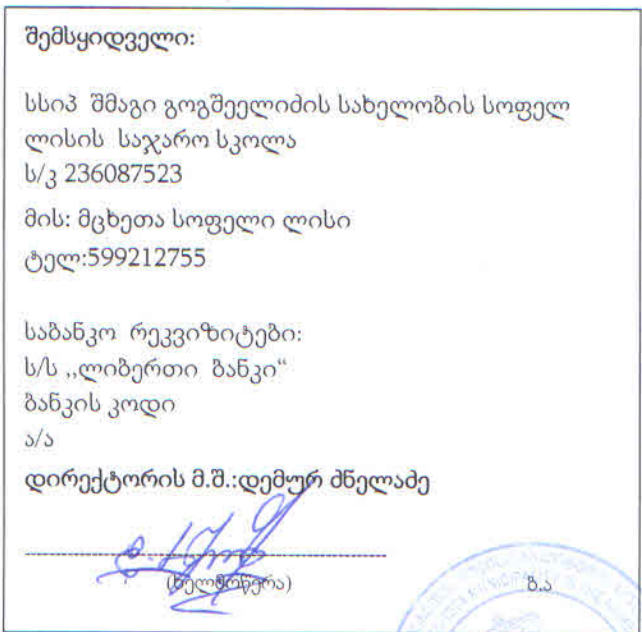 შემსყიდველი:
სსიპ შმაგი გოგშეელიძის სახელობის სოფელ
ლისის საჯარო სკოლა
ს/კ 236087523
მის: მცხეთა სოფელი ლისი
ტელ:599212755
საბანკო რეკვიზიტები:
ს/ს ,,ლიბერთი ბანკი“
ბანკის კოდი
ა/ა
დირექტორის მ.შ.:დემურ ძნელაძე
(ხელმოწერა) ბ.ა